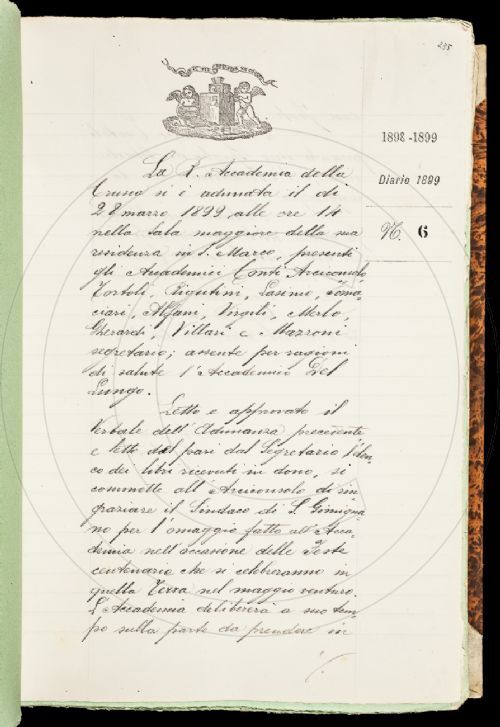 235
1898-1899
Diario 1899
N. 6
La R. Accademia della
Crusca si è adunata il dì
28 marzo 1899 alle ore 14
nella Sala maggiore della sua
residenza in S. Marco, presenti
gli Accademici Conti Arciconsolo
Tortoli, Rigutini, Lasinio, Toma-
ciari, Alfani, Virgili, Merlo,
Gherardi, Villari e Mazzoni
segretario; assente per ragioni
di salute l'Accademico Del
Lungo.
Letto e approvato il
verbale dell'Adunanza precedente
e letto del pari dal Segretario l'elen-
co dei libri ricevuti in dono, si
commette all'Arciconsolo di rin-
graziare il Sindaco di S. Gimigna-
no per l'omaggio fatto all'Acca-
demia nell'occasione delle Feste
centenarie che si celebreranno in
quella Terra nel maggio venturo.
L'Accademia delibererà a suo tem-
po sulla parte da prendere in